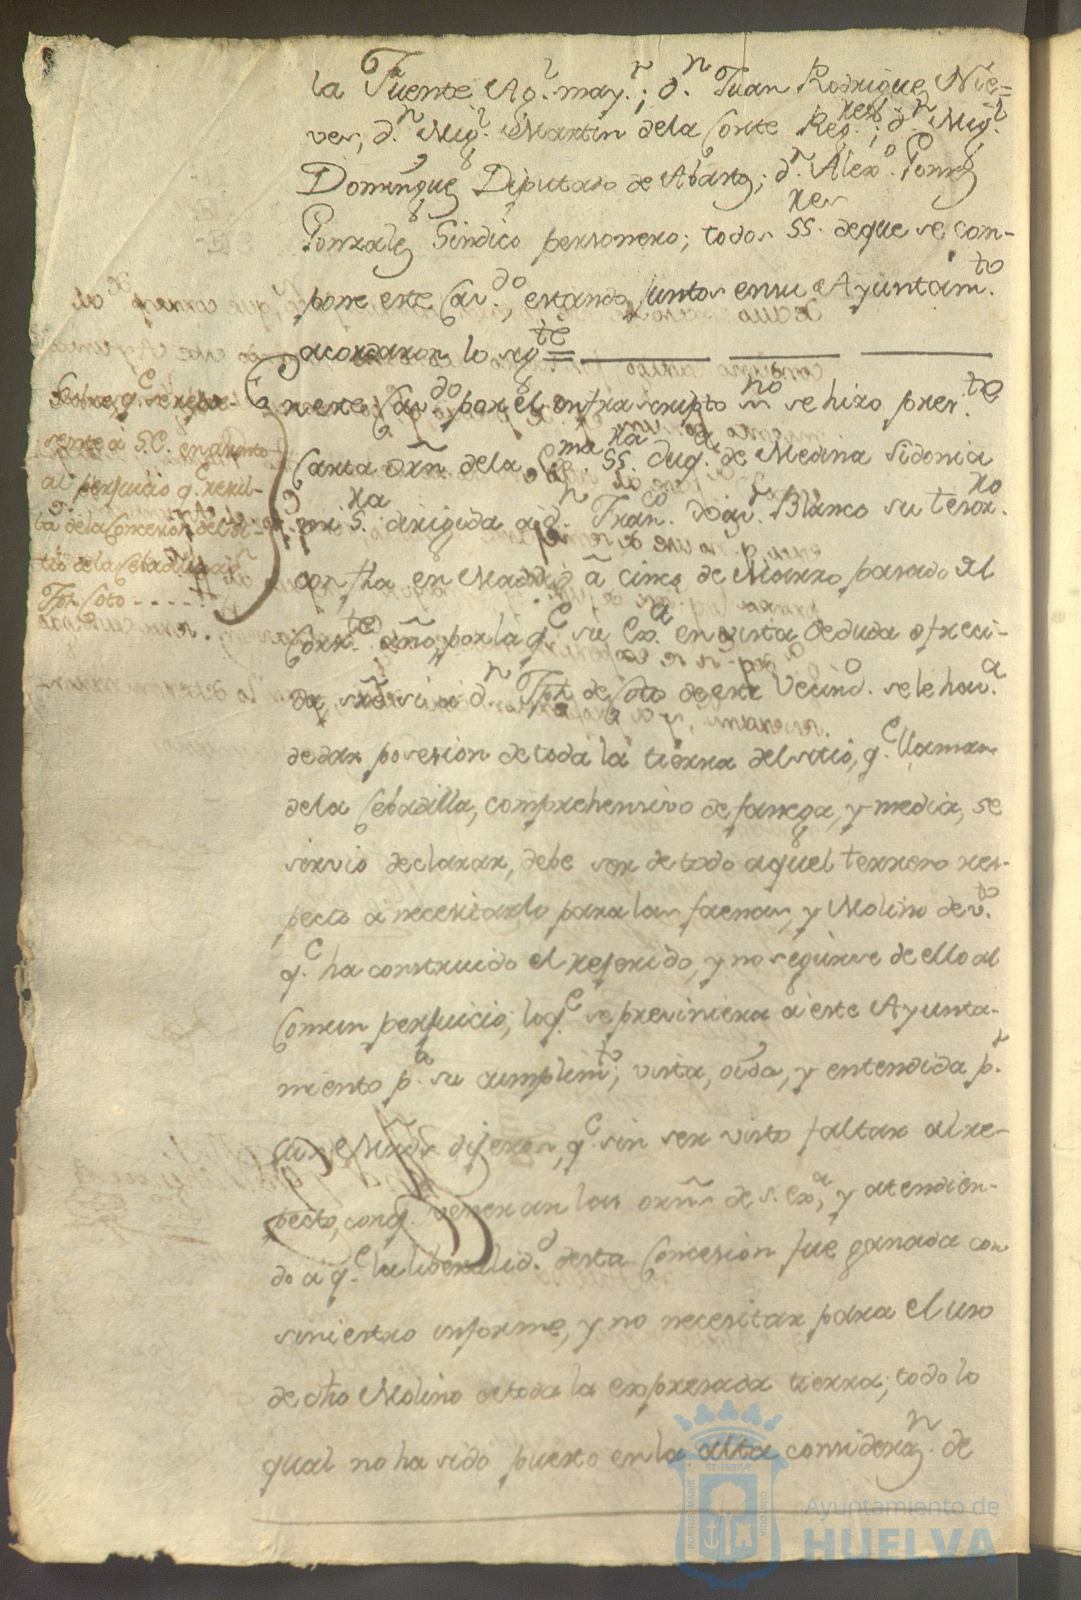 la Fuente Ag.l may.r; d.n Juan Rodriguez Nie=
ves, d.n Mig.l Martin dela Corte Reg.res; d.n Mig.l
Dominguez Diputado de Abasto; d.n Alexo. Gonz
Gonzalez Sindico personero; todos SS.res deque se com-
pone este Cav.do, estando juntos en su Ayuntam.to
acordaron lo sig.te =
Sobre q.e se repre-
sente a S.E. en asunto
al perjuicio q.e resul-
ta dela Concesion del Si-
tio dela Cebadilla a d.n
Jph Soto
En este Cav.do por el infrascripto ss.no se hizo pres.te
Carta orn dela Ex.ma SS.ra Duq.a de Medina Sidonia
mi S.ra dirigida a d.n Fran.co Xav.r Blanco su tesor.ro
con fha en Madrid à cinco de Marzo pasado del
Corr.te año, por la q.e su Ex.a en vista de duda ofreci-
da, sre si a d.n Jph de Soto de este Vecind.o se le hav.a
de dar posesion de toda la tierra del sitio, q.e llaman
dela Cebadilla, comprehensivo de fanega, y media, se
sirvio declarar, debe ser de todo aquel terreno res-
pecto a necesitarlo para las faenas, y Molino de v.to
q.e ha construido el referido, y no seguirse de ello al
Comun perjuicio; loq.e se previniera a este Ayunta-
miento p.a su cumplim.to; vista, oida, y entendida p.r
sus Mrds dijeron, q.e sin ser visto faltar al res-
pecto, conq.e veneran las orns de S. Ex.a, y atendien-
do a q.e la liberalid.d desta Concesion fue ganada con
siniestro informe, y no necesitar para el uso
de dho Molino de toda la expresada tierra; todo lo
qual no ha sido puesto en la alta consideraz.n de
Ayuntamiento de
HUELVA